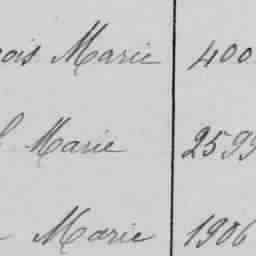 ois Marie 400
l Marie 2599
Marie 1906